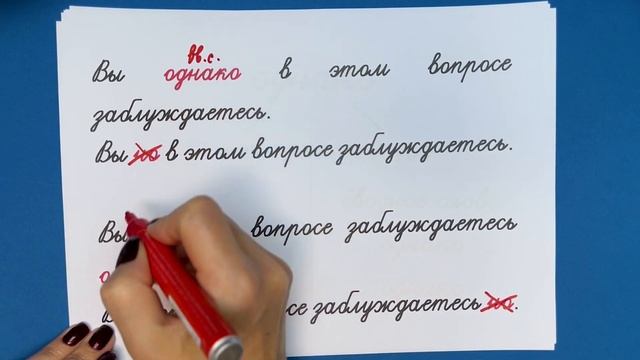 Н.с.
Вы однако в этом вопросе
заблуждаетесь.
Вы но в этом вопросе заблуждаетесь.
Вы вопросе заблуждаетесь
заблуждаетесь но.